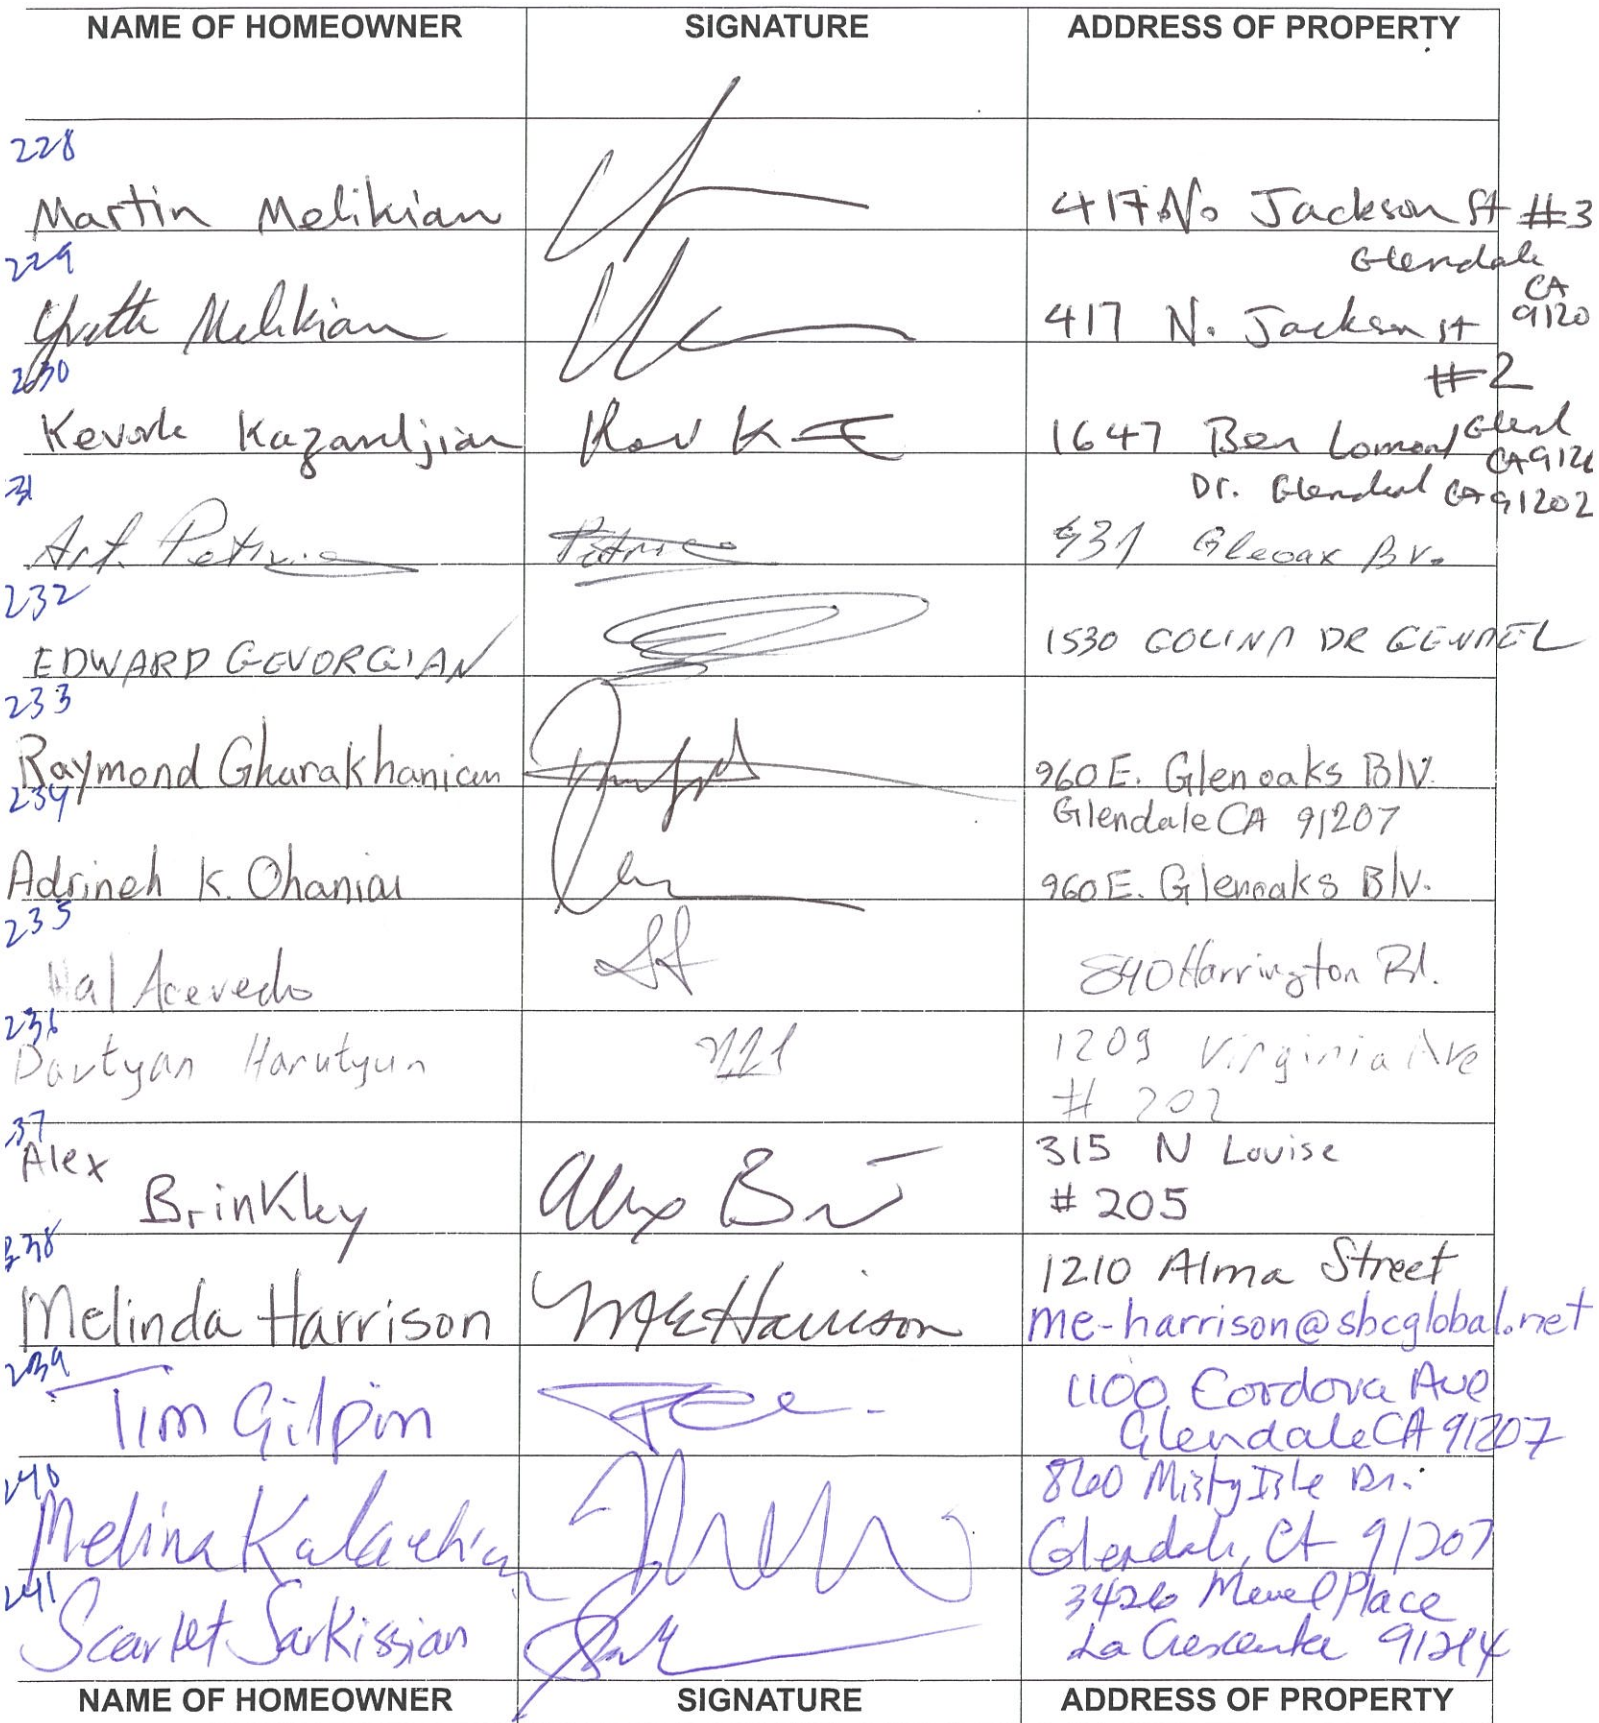 NAME OF HOMEOWNER SIGNATURE ADDRESS OF PROPERTY
228
Martin Melikian 417 No Jackson St #3
Glendale
CA
9120
229
Yvette Melikian 417 N. Jackson st
#2
230
Kevork Kazandjian Kev K 1647 Ben Lomond Glend
CA 9120
Dr. Glendal CA 91202
31
Art. Petros 531 Gleoax Bv.
232
EDWARD GEVORGIAN 1530 COLINA DR GENDEL
233
Raymond Gharakhanian 960 E. Glenoaks Blv.
Glendale CA 91207
234
Adrineh K. Ohanian 960 E. Glenoaks Blv.
235
Hal Acevedo 840 Harrington Rd.
236
Davtyan Harutyun 1209 Virginia Ave
# 202
37
Alex Brinkley Alex B 315 N Louise
# 205
238
Melinda Harrison ME Harrison 1210 Alma Street
me-harrison@sbcglobal.net
239
Tim Gilpin 1100 Cordova Ave
Glendale CA 91207
240
Melina Kalachian 860 Misty Isle Dr.
Glendale, CA 91207
241
Scarlet Sarkissian 3426 Place
La Crescenta 91214
NAME OF HOMEOWNER SIGNATURE ADDRESS OF PROPERTY